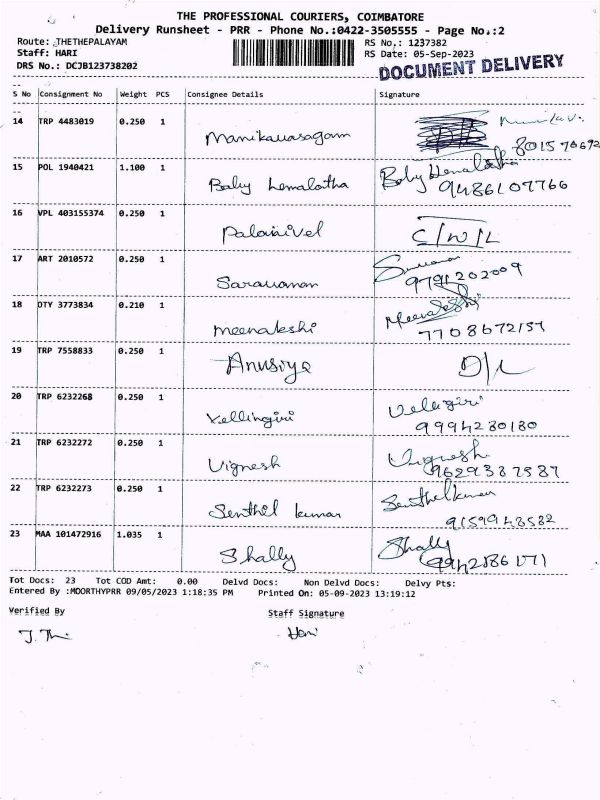 THE PROFESSIONAL COURIERS, COIMBATORE
Delivery Runsheet - PRR - Phone No.:0422-3505555 - Page No.:2
Route: THETHEPALAYAM RS No.: 1237382
Staff: HARI RS Date: 05-Sep-2023
DRS No.: DCJB123738202 DOCUMENT DELIVERY
S No Consignment No Weight PCS Consignee Details Signature
14 TRP 4483019 0.250 1 Manikavasagam
15 POL 1940421 1.100 1 Baby hemalatha Baby Hemalatha
9486107766
16 VPL 403155374 0.250 1 Palanivel C/W/L
17 ART 2010572 0.250 1 Saravanan
9791202009
18 OTY 3773834 0.210 1 meenakshi Meenakshi
7708672157
19 TRP 7558833 0.250 1 Anusiya D/L
20 TRP 6232268 0.250 1 Vellingiri Velagiri
9994280180
21 TRP 6232272 0.250 1 Vignesh Vignesh
9629387587
22 TRP 6232273 0.250 1 Senthil kumar Senthelkumar
9159948582
23 MAA 101472916 1.035 1 Shally Shally
Tot Docs: 23 Tot COD Amt: 0.00 Delvd Docs: Non Delvd Docs: Delvy Pts:
Entered By :MOORTHYPRR 09/05/2023 1:18:35 PM Printed On: 05-09-2023 13:19:12
Verified By Staff Signature
Hari